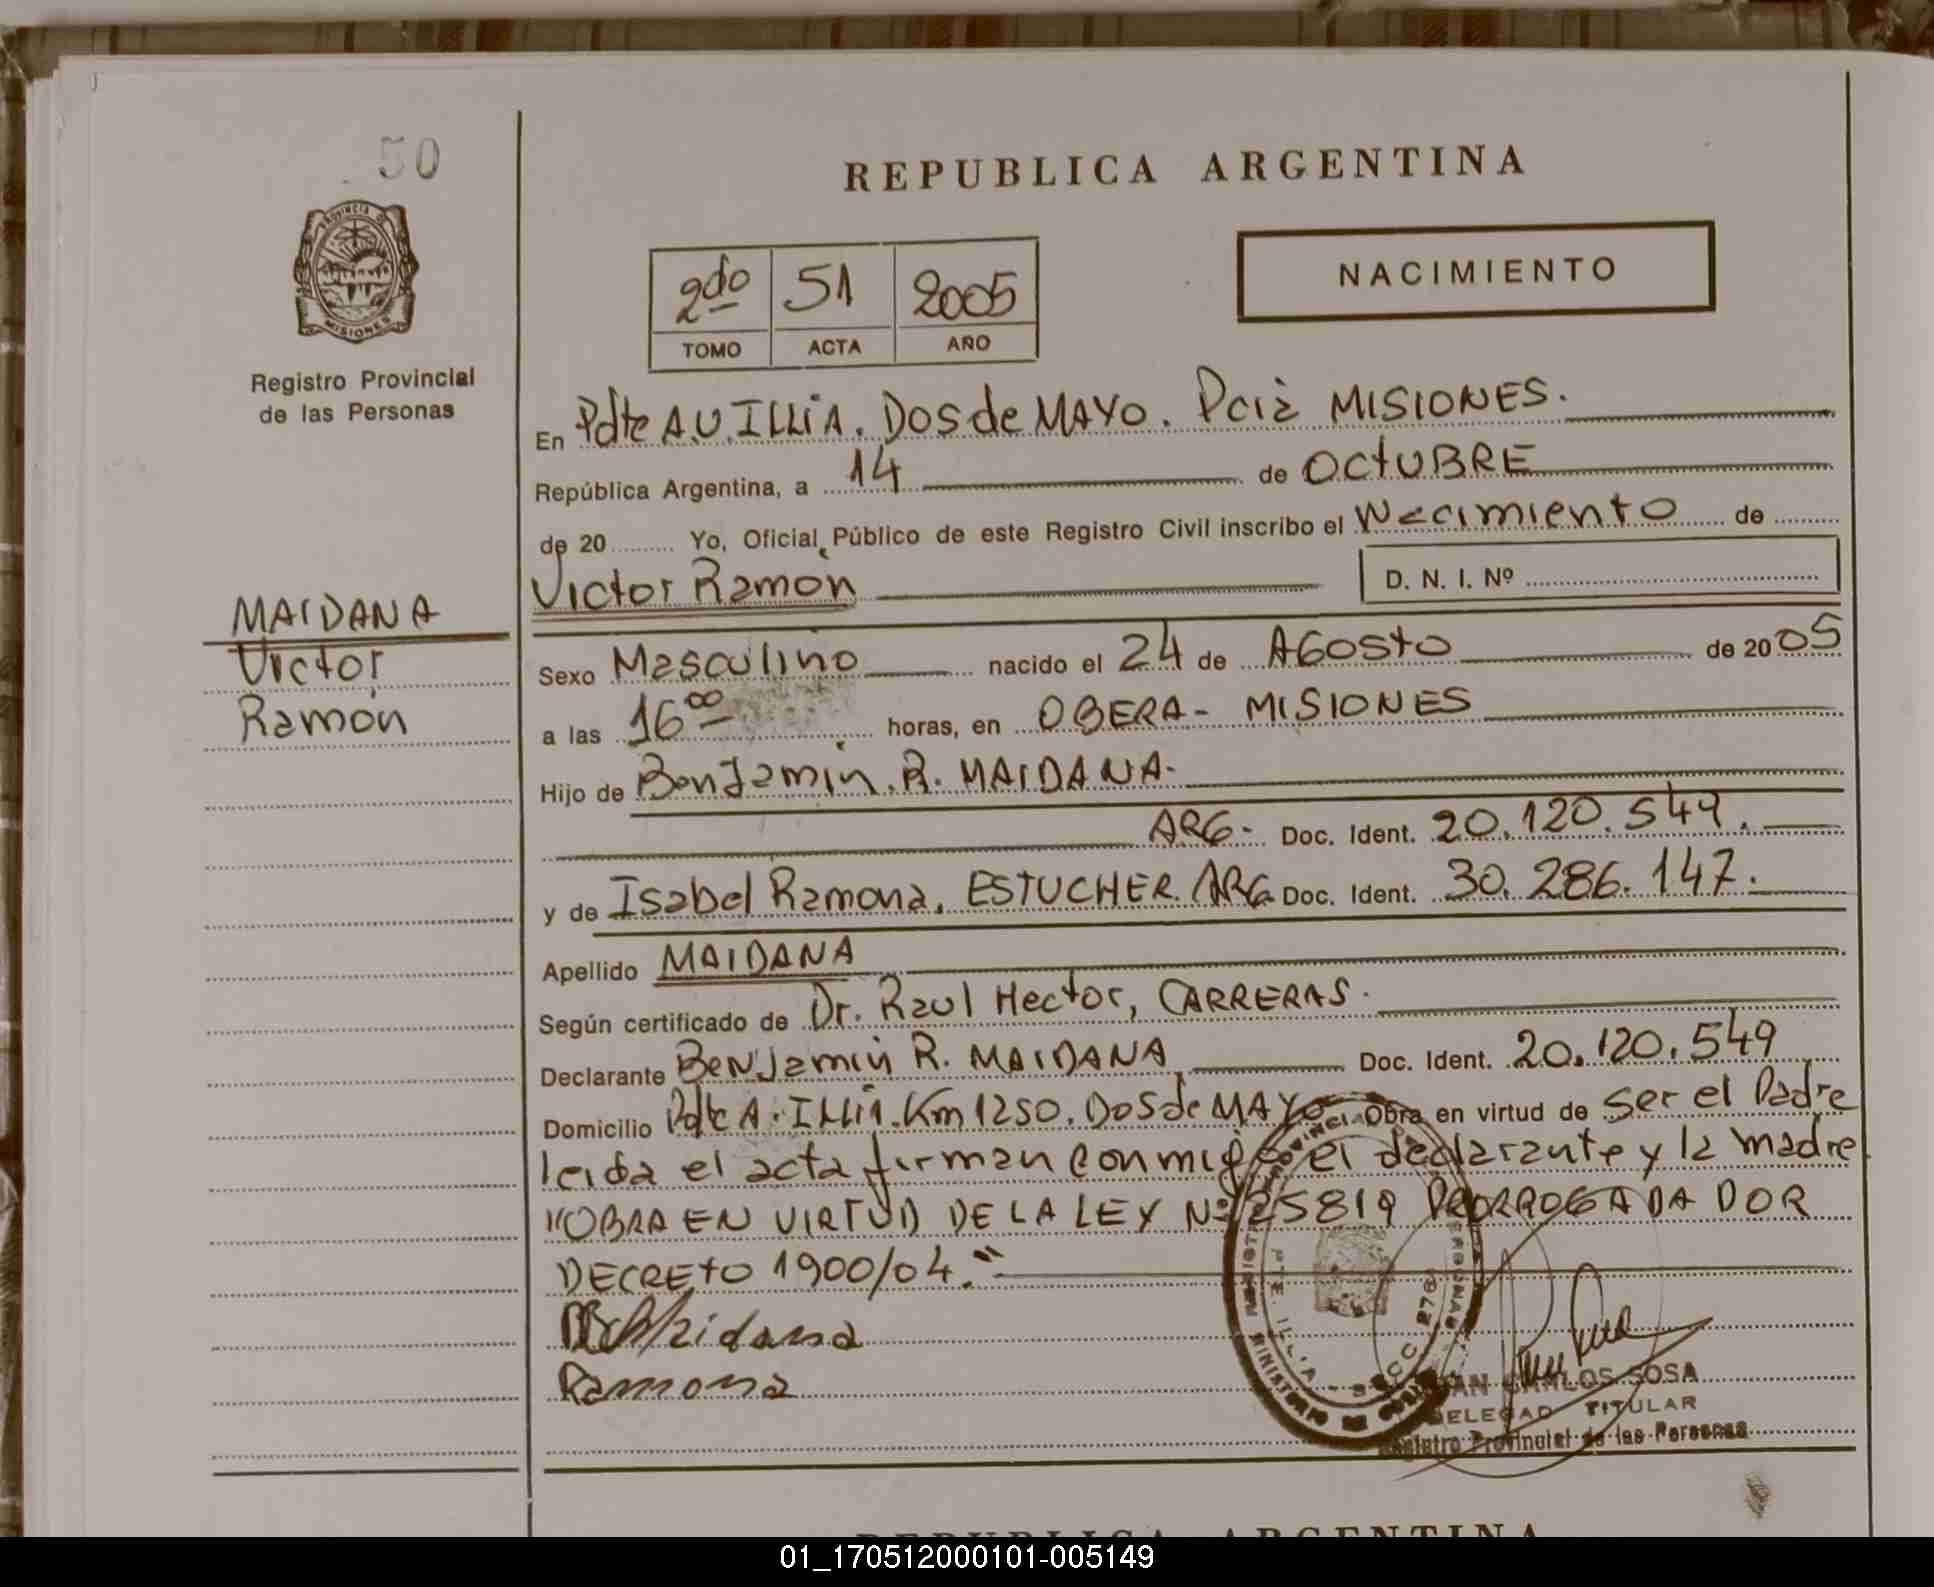 50
REPUBLICA ARGENTINA
PROVINCIA DE
MISIONES
Registro Provincial
de las Personas
2do 51 2005
TOMO ACTA AÑO
NACIMIENTO
En Pdte A.U. ILLIA. DOS de MAYO. Pcia MISIONES.
República Argentina, a 14 de OCtUBRE
de 20 Yo, Oficial Público de este Registro Civil inscribo el Nacimiento de
Victor Ramón D. N. I. Nº
MAIDANA
Victor
Ramón
Sexo Masculino nacido el 24 de AGOSto de 2005
a las 16 00 horas, en OBERA - MISIONES
Hijo de Benjamin. R. MAIDANA.
ARG. Doc. Ident. 20.120.549.
y de Isabel Ramona, ESTUCHER. ARG. Doc. Ident. 30.286.147.
Apellido MAIDANA
Según certificado de Dr. Raul Hector, CARRERAS.
Declarante Benjamin R. MAIDANA Doc. Ident. 20.120.549
Domicilio Pdte A. Illia. Km 1250. DOS de MAYO Obra en virtud de ser el Padre
leida el acta firman conmigo el declarante y la madre
"OBRA EN VIRTUD DE LA LEY Nº 25819 PRORROGADA POR
DECREtO 1900/04."
Maidana
Ramona
JUAN CARLOS SOSA
DELEGADO TITULAR
Registro Provincial de las Personas
REPUBLICA ARGENTINA
01_170512000101-005149